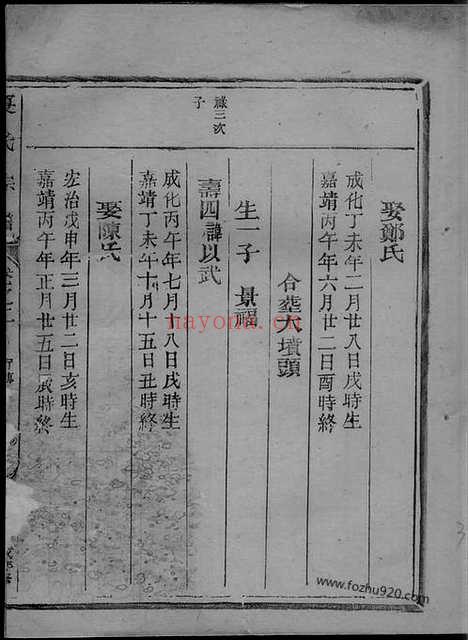 祿三次
子
娶鄭氏
成化丁未年二月廿八日戌時生
嘉靖丙午年六月廿二日酉時終
合塟大墳頭
生一子 景福
壽四諱以武
成化丙午年七月十八日戌時生
嘉靖丁未年十月十五日丑時終
娶陳氏
宏治戊申年三月廿二日亥時生
嘉靖丙午年正月廿五日辰時終
氏宗譜
hayona.cn
www.fozhu920.com